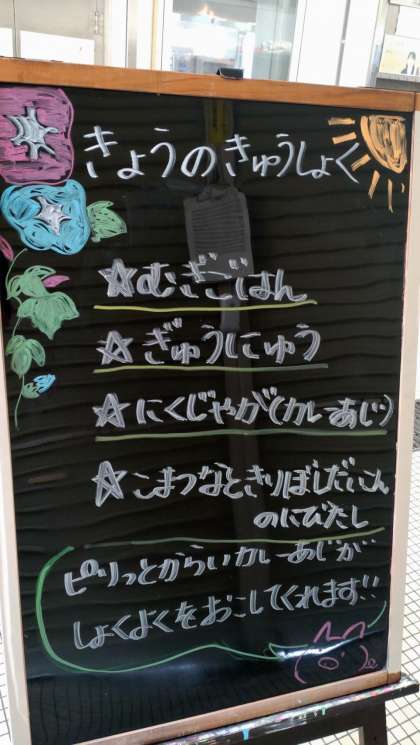 きょうのきゅうしょく
☆むぎごはん
☆ぎゅうにゅう
☆にくじゃが(カレーあじ)
☆こまつなときりぼしだいこん
のにびたし
ピリッとからいカレーあじが
しょくよくをおこしてくれます!!